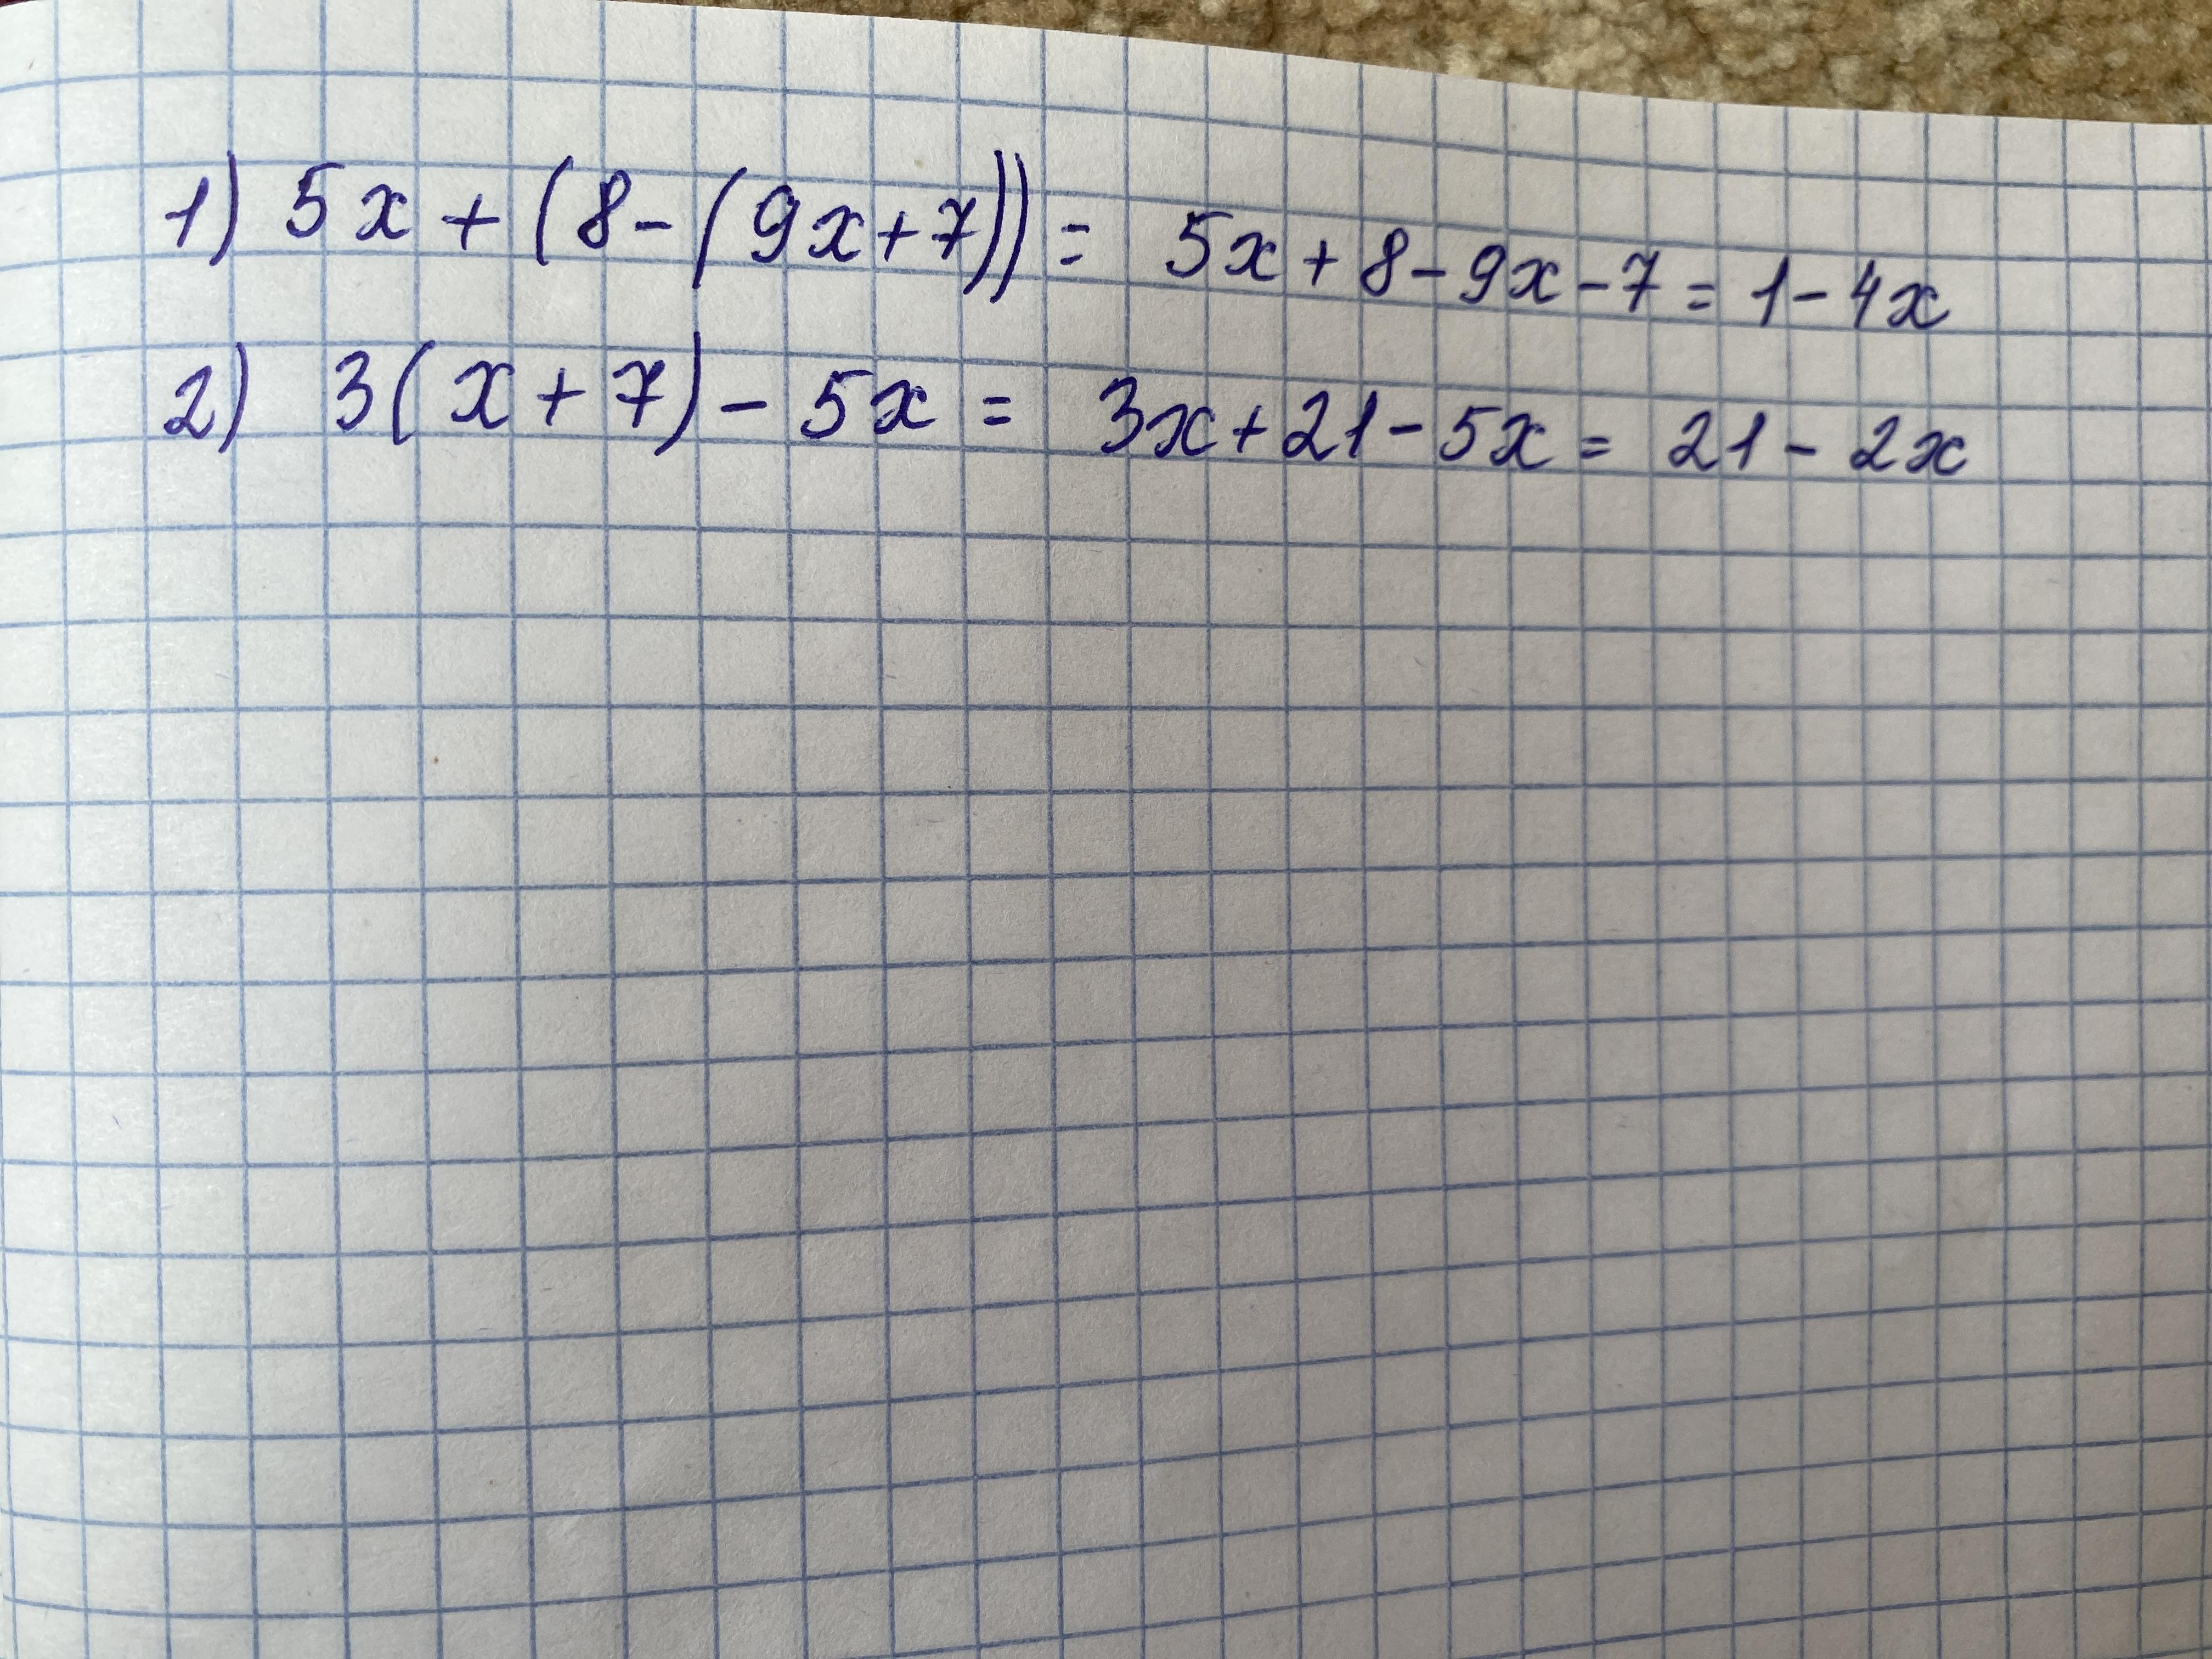 1) 5x + (8 - (9x + 7)) = 5x + 8 - 9x - 7 = 1 - 4x
2) 3(x + 7) - 5x = 3x + 21 - 5x = 21 - 2x